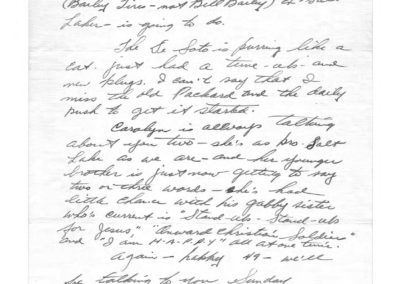 (Bailey Tire - not Bill Bailey) of Salt
Laker - is going to do.
The De Soto is purring like a
cat. just had a tune-up - and
new plugs. I can't say that I
miss the old Packard and the daily
push to get it started.
Carolyn is allways talking
about you two - she's as pro. Salt
Lake as we are - and her younger
brother is just now getting to say
two or three words - he's had
little chance with his gabby sister
who's current is "Stand-up - Stand-up
for Jesus," "Onward Christian Soldiers"
and "I am H-A-P-P-Y" all at one time.
Again - happy 49 - we'll
be talking to you Sunday